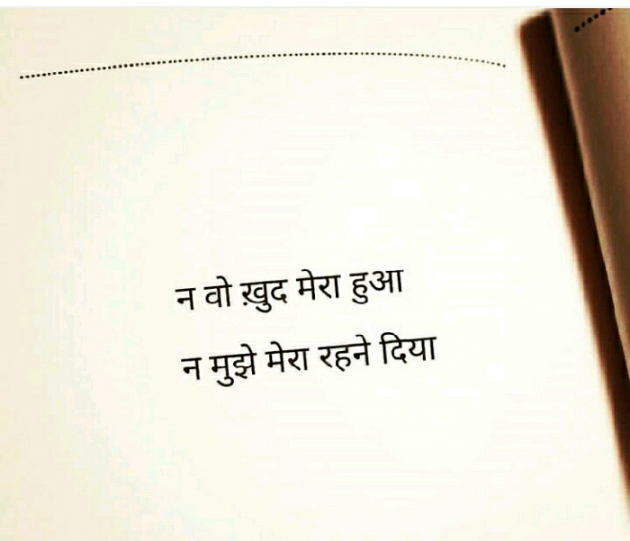 न वो ख़ुद मेरा हुआ
न मुझे मेरा रहने दिया